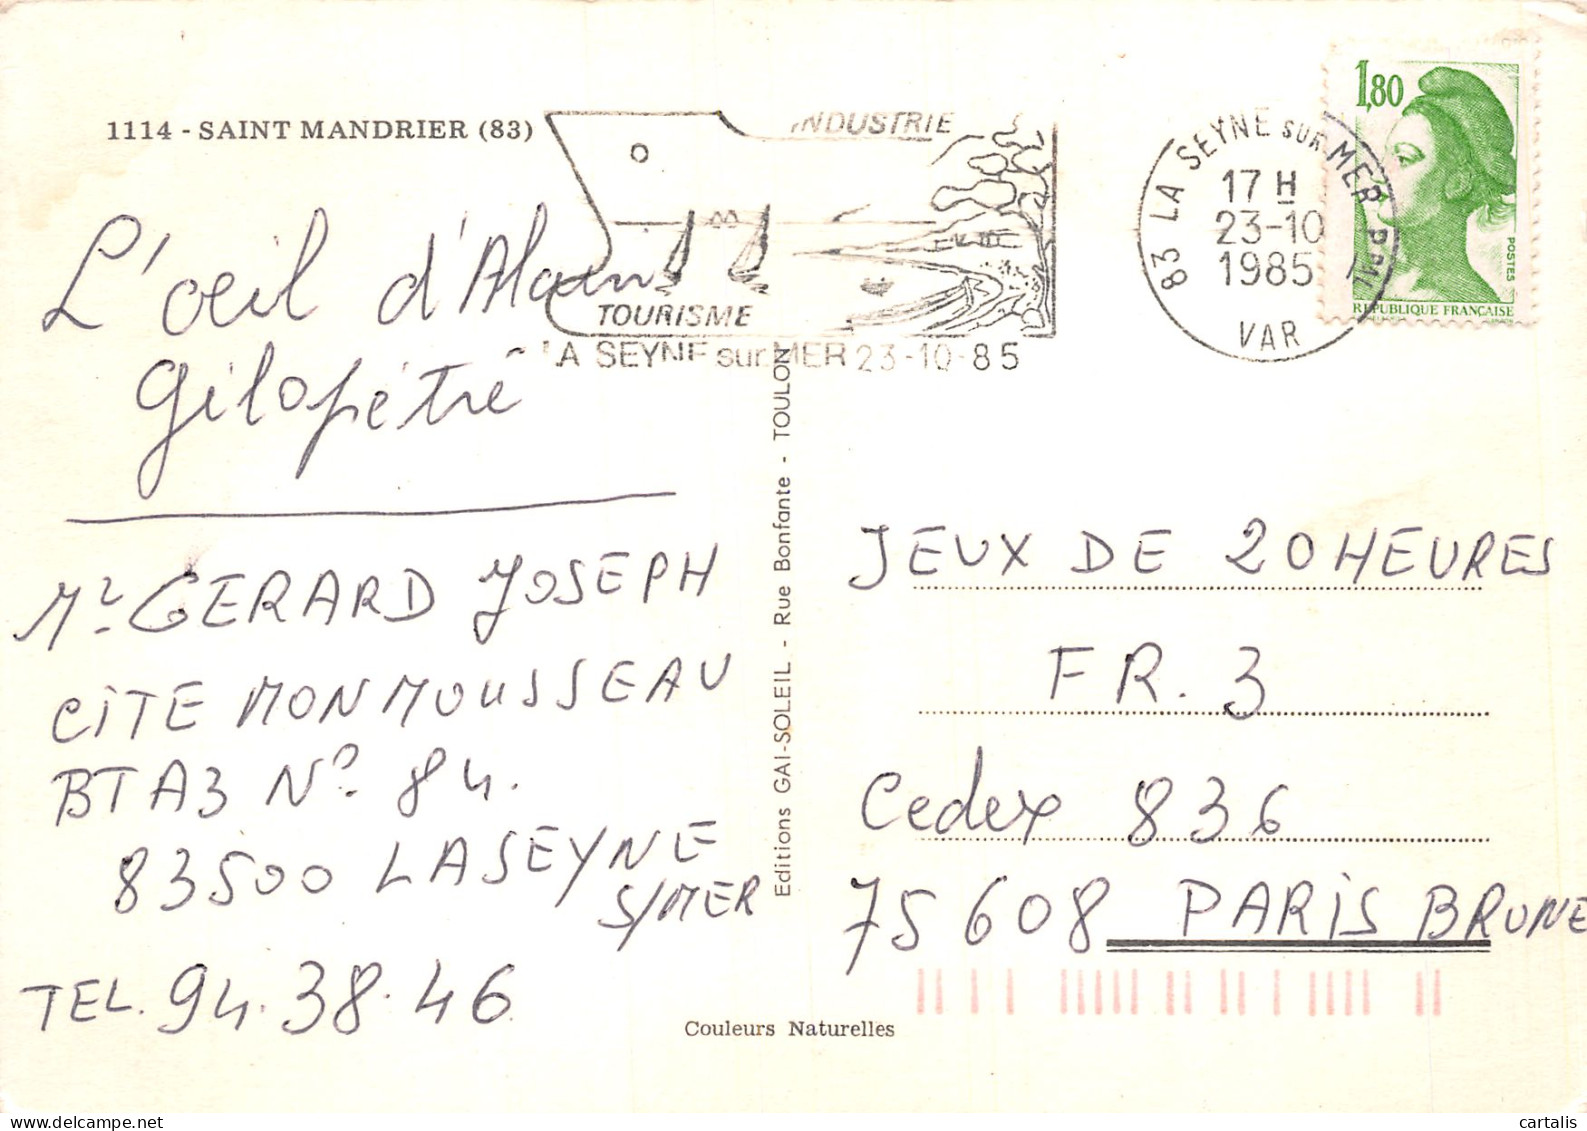 1114 - SAINT MANDRIER (83)
INDUSTRIE
TOURISME
LA SEYNE sur MER 23-10-85
83 LA SEYNE SUR MER PPAL
17 H
23-10
1985
VAR
1,80
POSTES
REPUBLIQUE FRANÇAISE
L'oeil d'Alain
Gilopétré
Mr GERARD JOSEPH
CITE MONMOUSSEAU
BTA3 No 84.
83500 LASEYNE
S/MER
TEL. 94.38.46
Editions GAI-SOLEIL - Rue Bonfante - TOULON
JEUX DE 20HEURES
FR. 3
Cedex 836
75608 PARIS BRUNE
Couleurs Naturelles
delcampe.net
cartalis